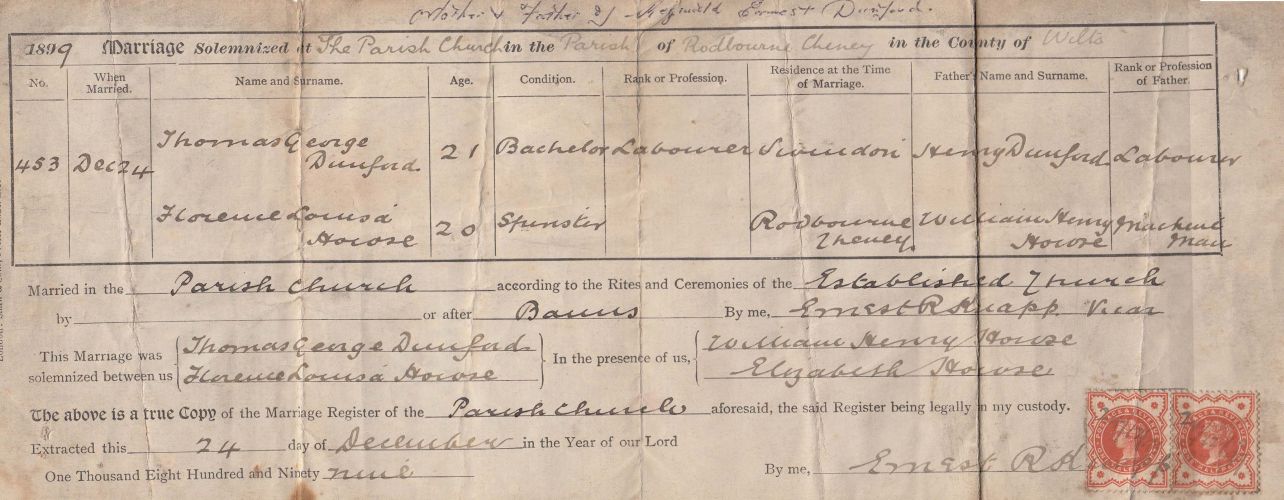 Mother & Father of Reginald Ernest Dunford.
1899 Marriage Solemnized at The Parish Church in the Parish of Rodbourne Cheney in the County of Wilts
No. When Married. Name and Surname. Age. Condition. Rank or Profession. Residence at the Time of Marriage. Father's Name and Surname. Rank or Profession of Father.
453 Dec 24 Thomas George Dunford 21 Bachelor Labourer Swindon Henry Dunford Labourer
Florence Louisa Howse 20 Spinster Rodbourne Cheney William Henry Howse Machine Man
Married in the Parish Church according to the Rites and Ceremonies of the Established Church
by or after Banns By me, Ernest R Knapp Vicar
This Marriage was solemnized between us Thomas George Dunford Florence Louisa Howse In the presence of us, William Henry Howse Elizabeth Howse
The above is a true Copy of the Marriage Register of the Parish Church aforesaid, the said Register being legally in my custody.
Extracted this 24 day of December in the Year of our Lord
One Thousand Eight Hundred and Ninety nine By me, Ernest R